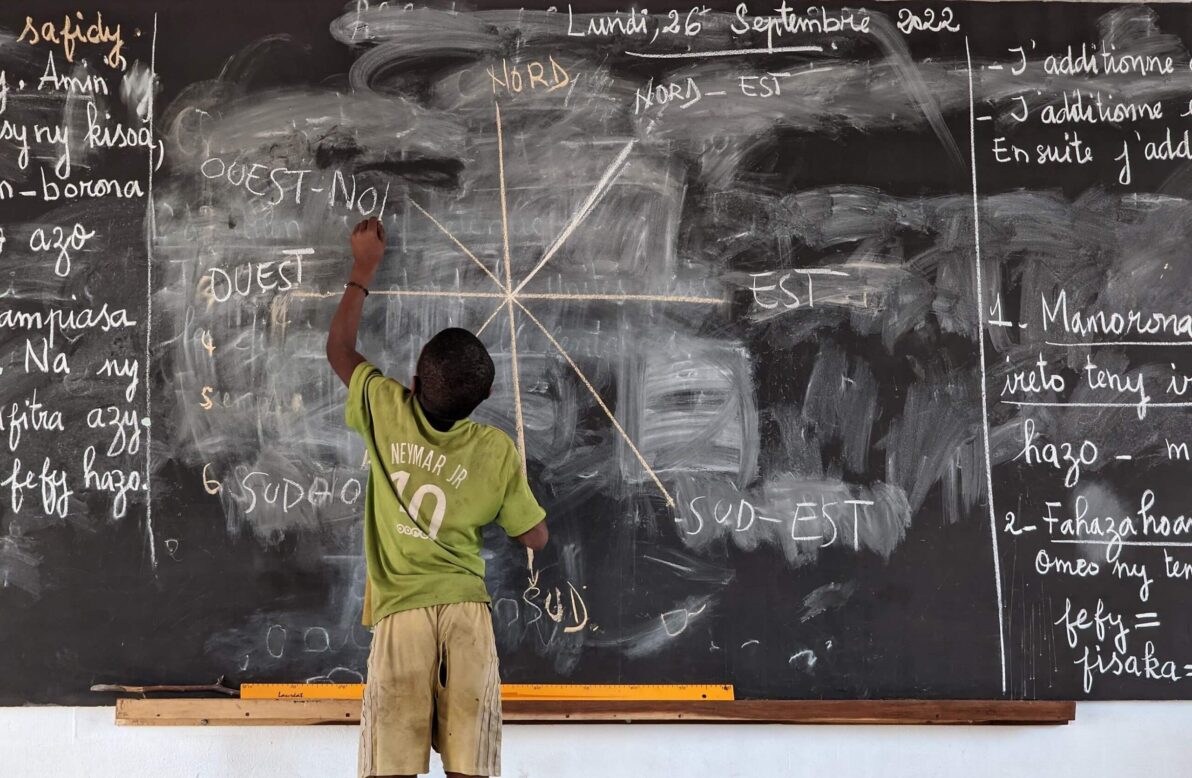 safidy.
y. Amin
sy ny kisoa,
n-borona
azo
ampiasa
. Na ny
fitra azy.
fefy hazo.
Lundi, 26 Septembre 2022
NORD
NORD-EST
OUEST-NO
OUEST
EST
4
5
6 SUD-O
SUD-EST
SUD
NEYMAR JR
10
- J'additionne
- J'additionne
Ensuite j'add
1- Mamorona
ireto teny
hazo - m
2- Fahazahoa
omeo ny ten
fefy =
fisaka =